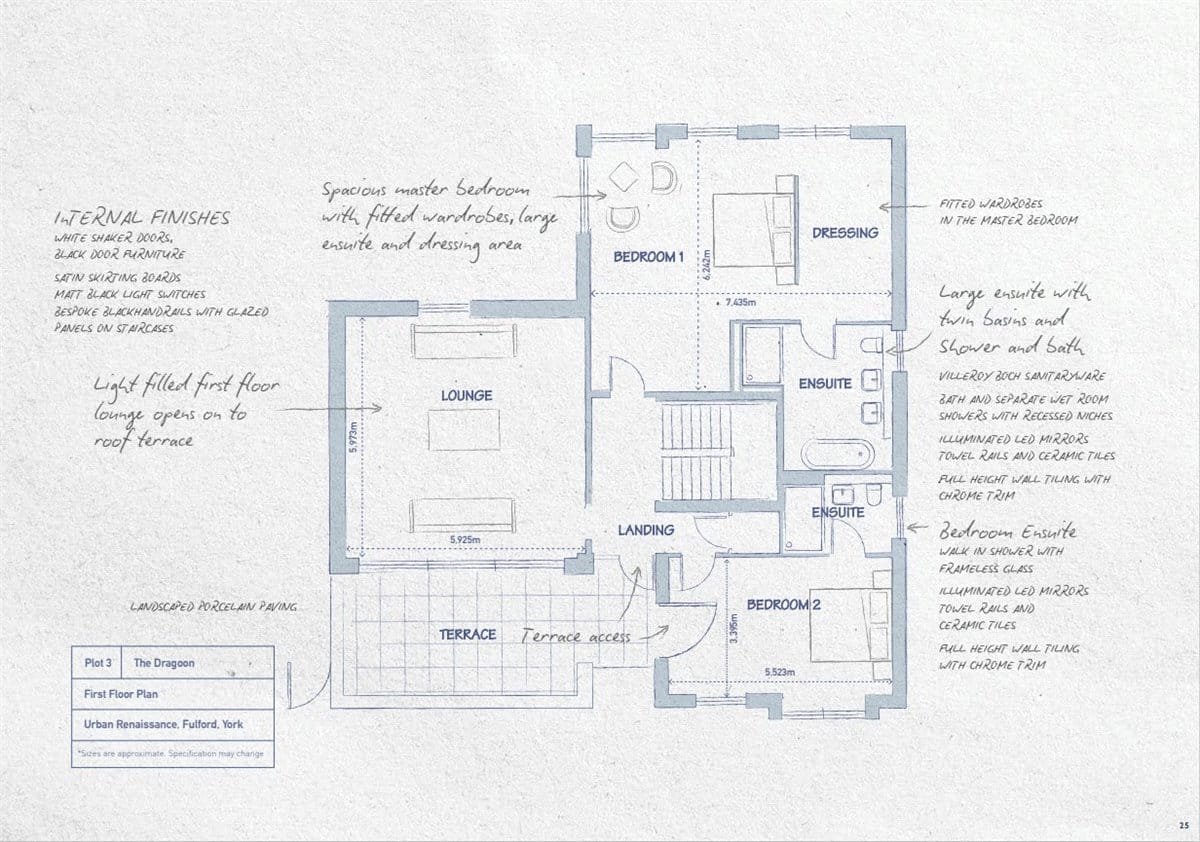 Spacious master bedroom
with fitted wardrobes, large
ensuite and dressing area
InTERNAL FINISHES
WHITE SHAKER DOORS,
BLACK DOOR FURNITURE
SATIN SKIRTING BOARDS
MATT BLACK LIGHT SWITCHES
BESPOKE BLACKHANDRAILS WITH GLAZED
PANELS ON STAIRCASES
Light filled first floor
lounge opens on to
roof terrace
BEDROOM 1
6,242m
7,435m
DRESSING
FITTED WARDROBES
IN THE MASTER BEDROOM
LOUNGE
5,973m
5,925m
ENSUITE
Large ensuite with
twin basins and
Shower and bath
VILLEROY BOCH SANITARYWARE
BATH AND SEPARATE WET ROOM
SHOWERS WITH RECESSED NICHES
ILLUMINATED LED MIRRORS
TOWEL RAILS AND CERAMIC TILES
FULL HEIGHT WALL TILING WITH
CHROME TRIM
LANDING
ENSUITE
Bedroom Ensuite
WALK IN SHOWER WITH
FRAMELESS GLASS
ILLUMINATED LED MIRRORS
TOWEL RAILS AND
CERAMIC TILES
FULL HEIGHT WALL TILING
WITH CHROME TRIM
BEDROOM 2
3,395m
5,523m
LANDSCAPED PORCELAIN PAVING
TERRACE
Terrace access
Plot 3 The Dragoon
First Floor Plan
Urban Renaissance, Fulford, York
*Sizes are approximate. Specification may change
25